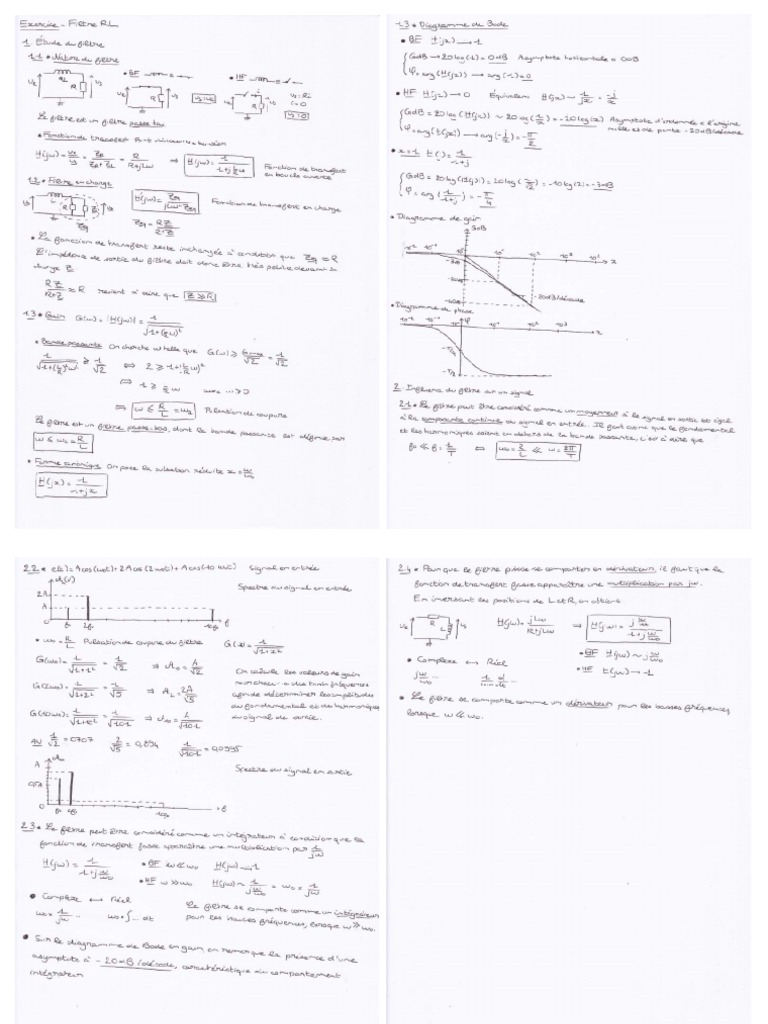 Exercice - Filtre RL
1. Étude du filtre
1.1 • Nature du filtre
• BF
• HF
Le filtre est un filtre passe bas
• Fonction de transfert
Fonction de transfert
en boucle ouverte
1.2 • Filtre en charge
Fonction de transfert en charge
• La fonction de transfert reste inchangée à condition que Zeq ≈ R
L'impédance de sortie du filtre doit donc être très petite devant la
charge Z
RZ/(R+Z) ≈ R revient à dire que Z >> R
1.3 • Gain G(ω) = |H(jω)| = 1/√(1+(L/R ω)²)
• Bande passante On cherche ω telle que G(ω) ≥ Gmax/√2 = 1/√2
⇔ ω ≤ R/L = ω0 Pulsation de coupure
Le filtre est un filtre passe-bas, dont la bande passante est définie par
ω ≤ ω0 = R/L
• Forme canonique On pose la pulsation réduite x = ω/ω0
H(jx) = 1/(1+jx)
1.3 • Diagramme de Bode
• BF H(jx) → 1
GdB → 20 log(1) = 0 dB Asymptote horizontale à 0dB
φ = arg(H(jx)) → arg(1) = 0
• HF H(jx) → 0 Équivalent H(jx) ~ 1/jx = -j/x
GdB = 20 log(H(jx)) ~ 20 log(1/x) = -20 log(x) Asymptote d'ordonnée à l'origine
nulle et de pente -20dB/décade
φ = arg(H(jx)) → arg(-j/x) = -π/2
• x = 1 H(j) = 1/(1+j)
GdB = 20 log(H(j)) = 20 log(1/√2) = -10 log(2) = -3dB
φ = arg(1/(1+j)) = -π/4
• Diagramme de gain
-20dB/décade
• Diagramme de phase
2. Influence du filtre sur un signal
2.1 • Le filtre peut être considéré comme un moyenneur si le signal en sortie est égal
à la composante continue du signal en entrée. Il faut donc que le fondamental
et les harmoniques soient en dehors de la bande passante, c'est à dire que
f0 << f = 1/T ⇔ ω0 = R/L << ω = 2π/T
2.2 • e(t) = A cos(ω0t) + 2A cos(2ω0t) + A cos(10ω0t) Signal en entrée
Spectre du signal en entrée
• ω0 = R/L Pulsation de coupure du filtre G(x) = 1/√(1+x²)
G(ω0) = 1/√(1+1²) = 1/√2 ⇒ A/√2
G(2ω0) = 1/√(1+2²) = 1/√5 ⇒ 2A/√5
G(10ω0) = 1/√(1+10²) = 1/√101 ⇒ A/√101
On calcule les valeurs de gain
pour chacune des trois fréquences
afin de déterminer les amplitudes
du fondamental et des harmoniques
du signal de sortie.
AN 1/√2 = 0,707 2/√5 = 0,894 1/√101 = 0,0995
Spectre du signal en sortie
2.3 • Le filtre peut être considéré comme un intégrateur à condition que la
fonction de transfert fasse apparaître une multiplication par 1/jω
H(jω) = 1/(1+jω/ω0) • BF ω << ω0 H(jω) → 1
• HF ω >> ω0 H(jω) ~ 1/(jω/ω0) = ω0 × 1/jω
• Complexe ↔ Réel
ω0 × 1/jω ... ω0 × ∫ ... dt
Le filtre se comporte comme un intégrateur
pour les hautes fréquences, lorsque ω >> ω0.
• Sur le diagramme de Bode en gain, on remarque la présence d'une
asymptote à -20dB/décade, caractéristique du comportement
intégrateur
2.4 • Pour que le filtre puisse se comporter en dérivateur, il faut que la
fonction de transfert fasse apparaître une multiplication par jω.
En inversant les positions de L et R, on obtient
H(jω) = jLω/(R+jLω) ⇒ H(jω) = (jω/ω0)/(1+jω/ω0)
• BF H(jω) ~ jω/ω0
• HF H(jω) → 1
• Complexe ↔ Réel
jω/ω0 ... 1/ω0 d/dt ...
• Le filtre se comporte comme un dérivateur pour les basses fréquences,
lorsque ω << ω0.